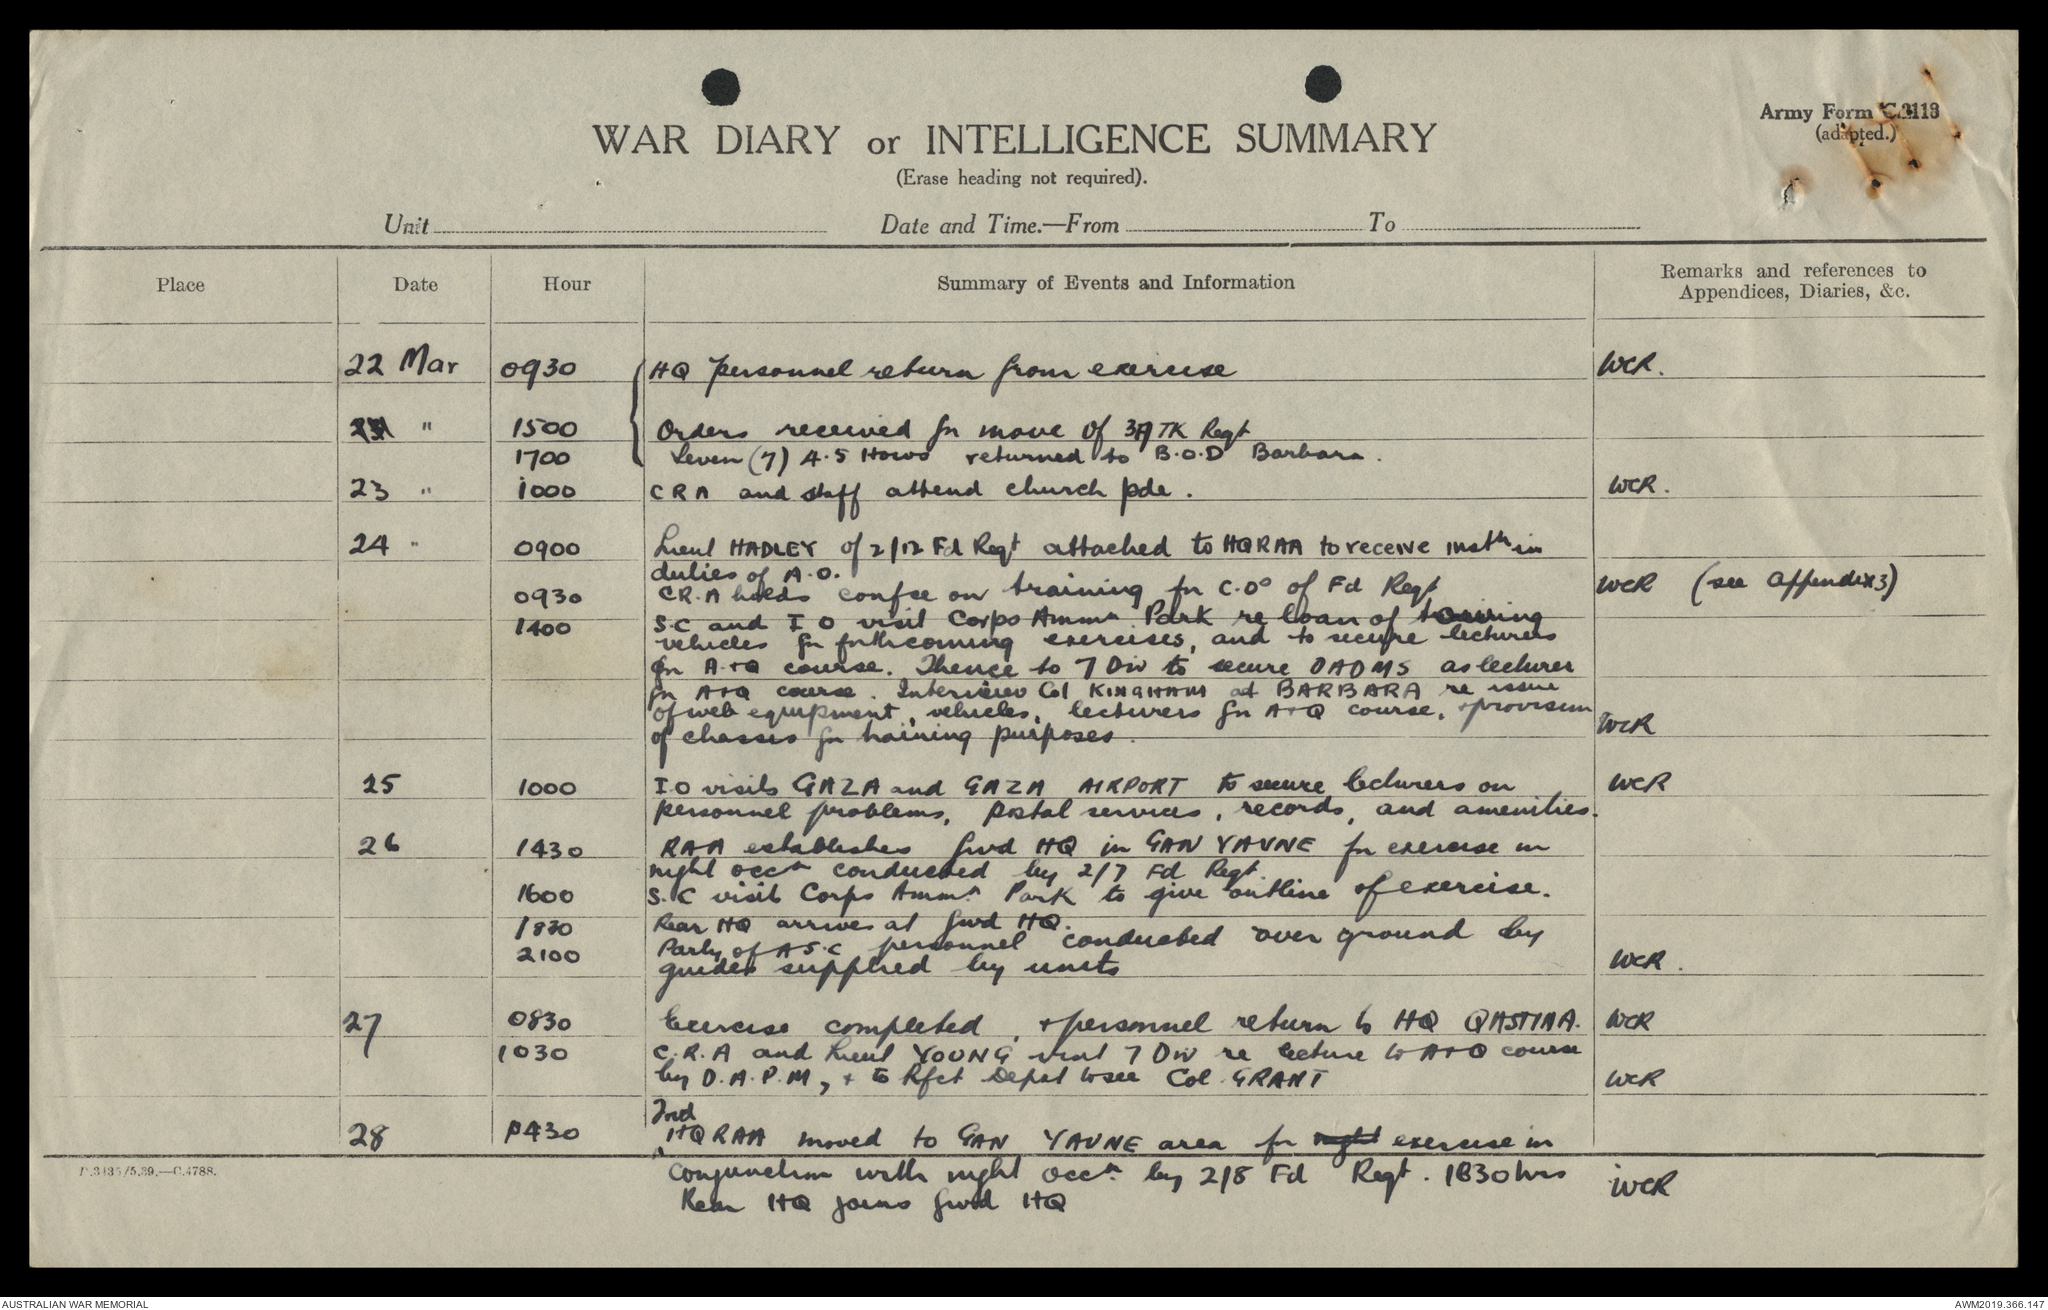 Army Form C.2118
(adapted.)
WAR DIARY or INTELLIGENCE SUMMARY
(Erase heading not required).
Unit Date and Time.—From To
Place Date Hour Summary of Events and Information Remarks and references to
Appendices, Diaries, &c.
22 Mar 0930 HQ personnel return from exercise WCR.
" 1500 Orders received for move of 3 A/TK Regt
1700 Seven (7) 4.5 Hows returned to B.O.D Barbara.
23 " 1000 CRA and staff attend church pde. WCR.
24 " 0900 Lieut HADLEY of 2/12 Fd Regt attached to HQRAA to receive instn in
duties of A.O.
0930 C.R.A holds confce on training for C.Os of Fd Regt WCR (see appendix 3)
1400 S.C and I O visit Corps Ammn Park re loan of
vehicles for forthcoming exercises, and to secure lecturers
for A+Q course. Thence to 7 Div to secure DADMS as lecturer
for A+Q course. Interview Col KINGHAM at BARBARA re issue
of web equipment, vehicles, lecturers for A+Q course, + provision
of chassis for training purposes. WCR
25 1000 I.O visits GAZA and GAZA AIRPORT to secure lecturers on WCR
personnel problems, postal services, records, and amenities.
26 1430 RAA establishes fwd HQ in GAN YAVNE for exercise in
night occn conducted by 2/7 Fd Regt.
1600 S.C visit Corps Ammn Park to give outline of exercise.
1830 Rear HQ arrives at fwd HQ.
2100 Party of A.S.C personnel conducted over ground by
guides supplied by units WCR.
27 0830 Exercise completed, + personnel return to HQ QASTINA. WCR
1030 C.R.A and Lieut YOUNG visit 7 Div re lecture to A+Q course
by D.A.P.M, + to Rfct Depot to see Col. GRANT WCR
Fwd
28 1430 HQRAA moved to GAN YAVNE area for night exercise in
conjunction with night occn by 2/8 Fd Regt. 1830 hrs WCR
Rear HQ joins fwd HQ
P.3435/5.39.—C.4788.
AUSTRALIAN WAR MEMORIAL AWM2019.366.147